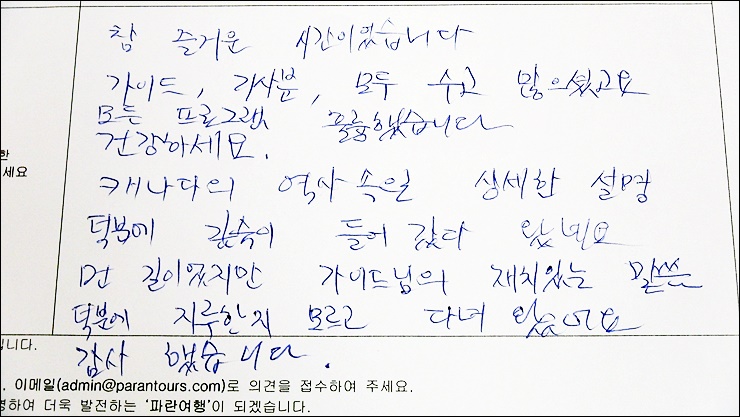 참 즐거운 시간이었습니다
가이드, 기사분, 모두 수고 많으셨고요
모든 프로그램 훌륭했습니다
건강하세요.
한
캐나다의 역사 속일 상세한 설명
세요
덕분에 깊숙이 들어 갔다 왔네요
먼 길이었지만 가이드님의 재치있는 말씀
덕분에 지루한지 모르고 다녀 왔어요
입니다.
감사 했습니다.
. 이메일(admin@parantours.com)로 의견을 접수하여 주세요.
영하여 더욱 발전하는 '파란여행'이 되겠습니다.